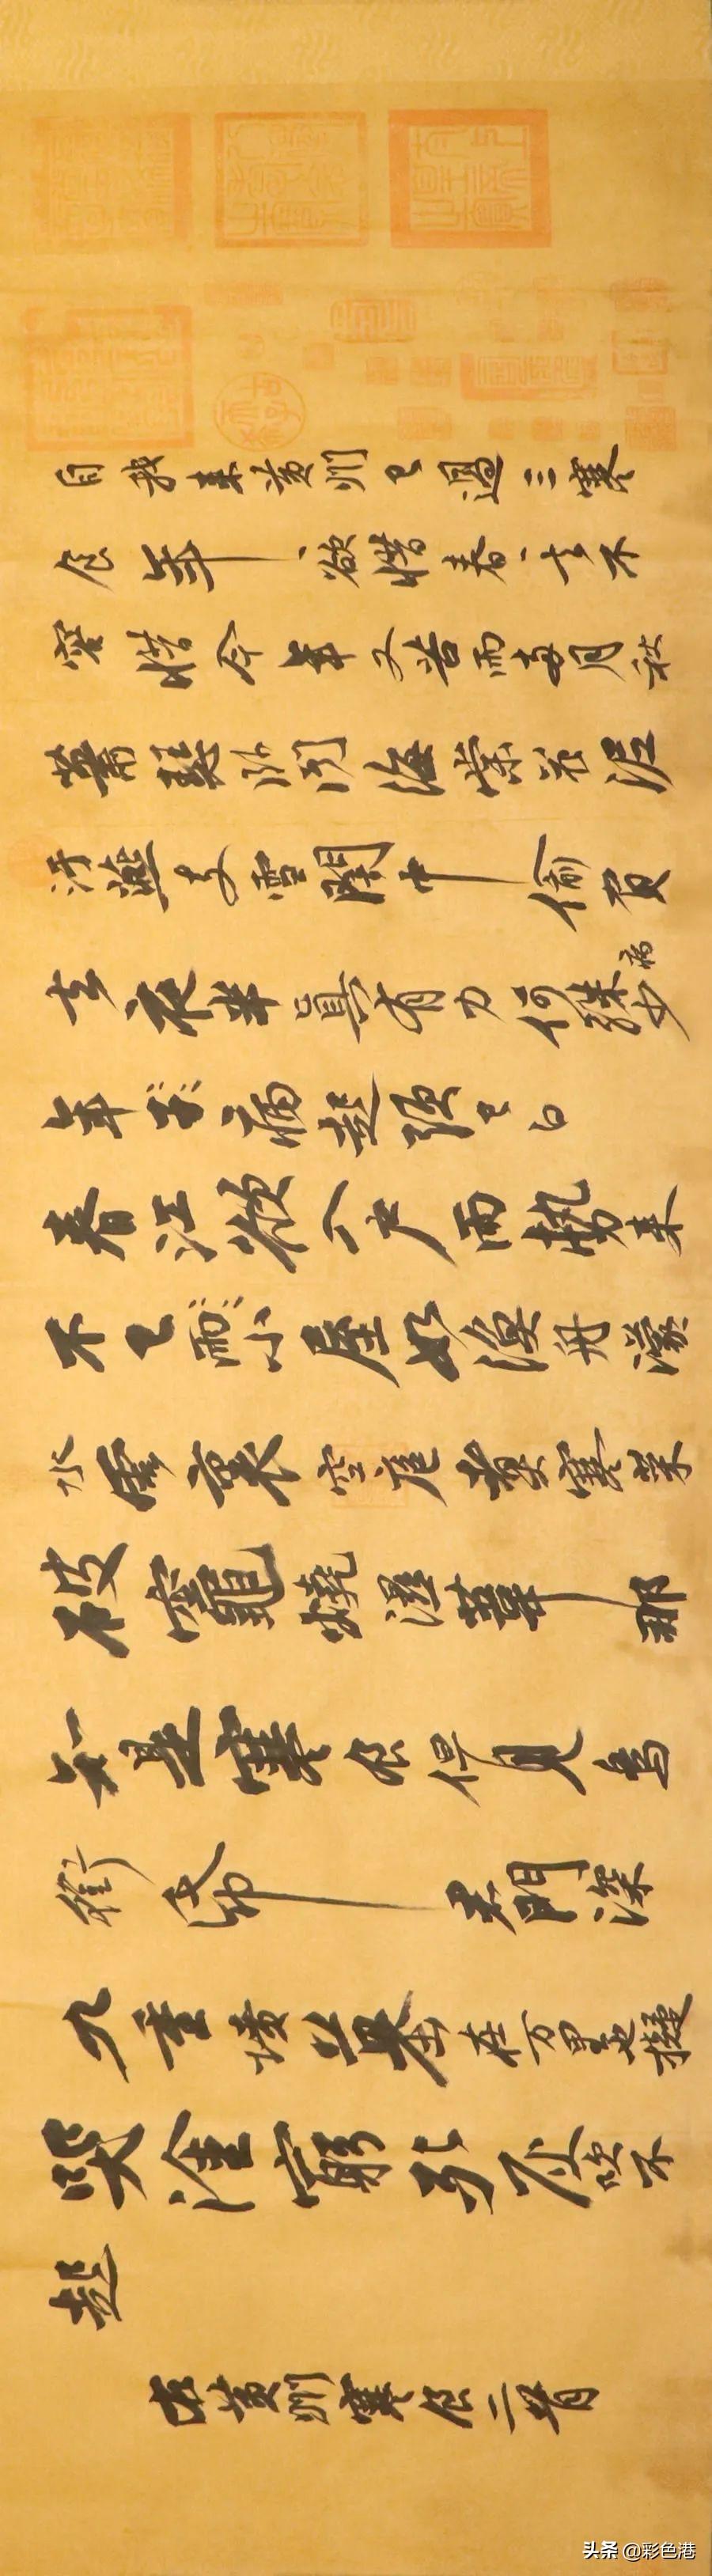 自我來黃州已過三寒
食年〻欲惜春〻去不
容惜今年又苦雨兩月秋
蕭瑟臥聞海棠花泥
汙燕支雪闇中偷負
去夜半真有力何殊病少
年子病起頭已白
春江欲入戶雨勢來
不已雨小屋如漁舟濛〻
水雲裏空庖煮寒菜
破竈燒濕葦那
知是寒食但見烏
銜帋君門深
九重墳墓在万里也擬
哭塗窮死灰吹不
起
右黃州寒食二首
头条 @彩色港